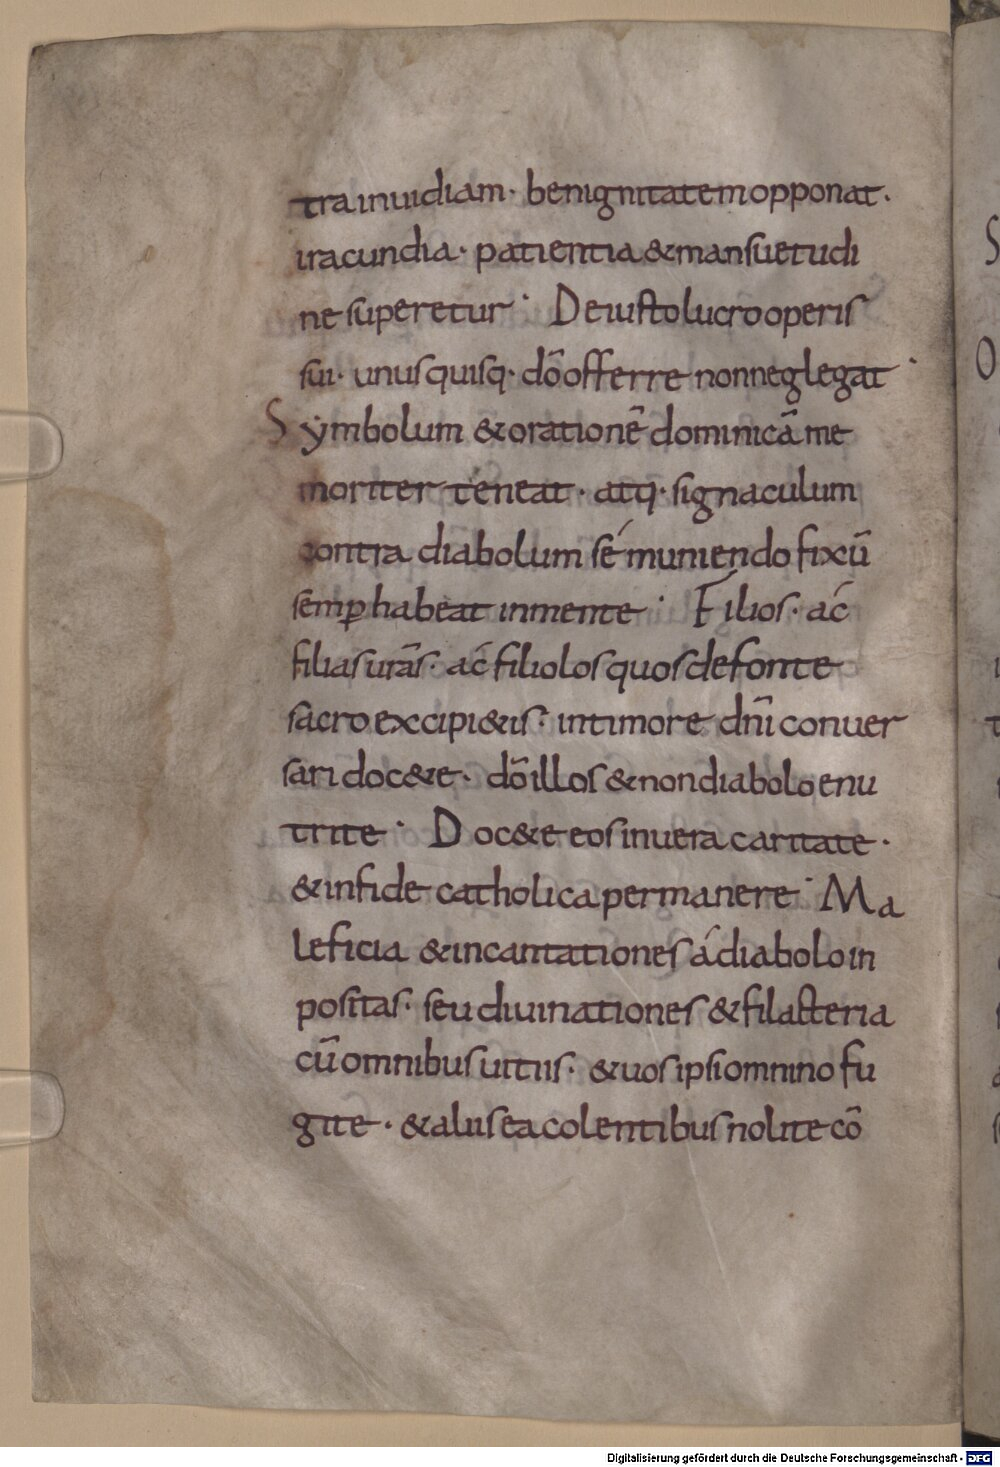 tra inuidiam· benignitatem opponat·
iracundia· patientia & mansuetudi
ne superetur· De iusto lucro operis
sui· unusquisq· dō offerre non neglegat·
Symbolum & orationē dominicā me
moriter teneat· atq· signaculum
contra diabolum sé muniendo fixū
semp̱ habeat in mente· Filios· ac
filias urās· ac filiolos quos de fonte
sacro excipi&is· in timore dn̄i conuer
sari doc&e· dō illos & non diabolo enu
trite· Doc&e eos in uera caritate·
& in fide catholica permanere· Ma
leficia & incantationes á diabolo in
positas· seu diuinationes & filacteria
cū omnibus uitiis· & uos ipsi omnino fu
gite· & aliis ea colentibus nolite cō
Digitalisierung gefördert durch die Deutsche Forschungsgemeinschaft - DFG